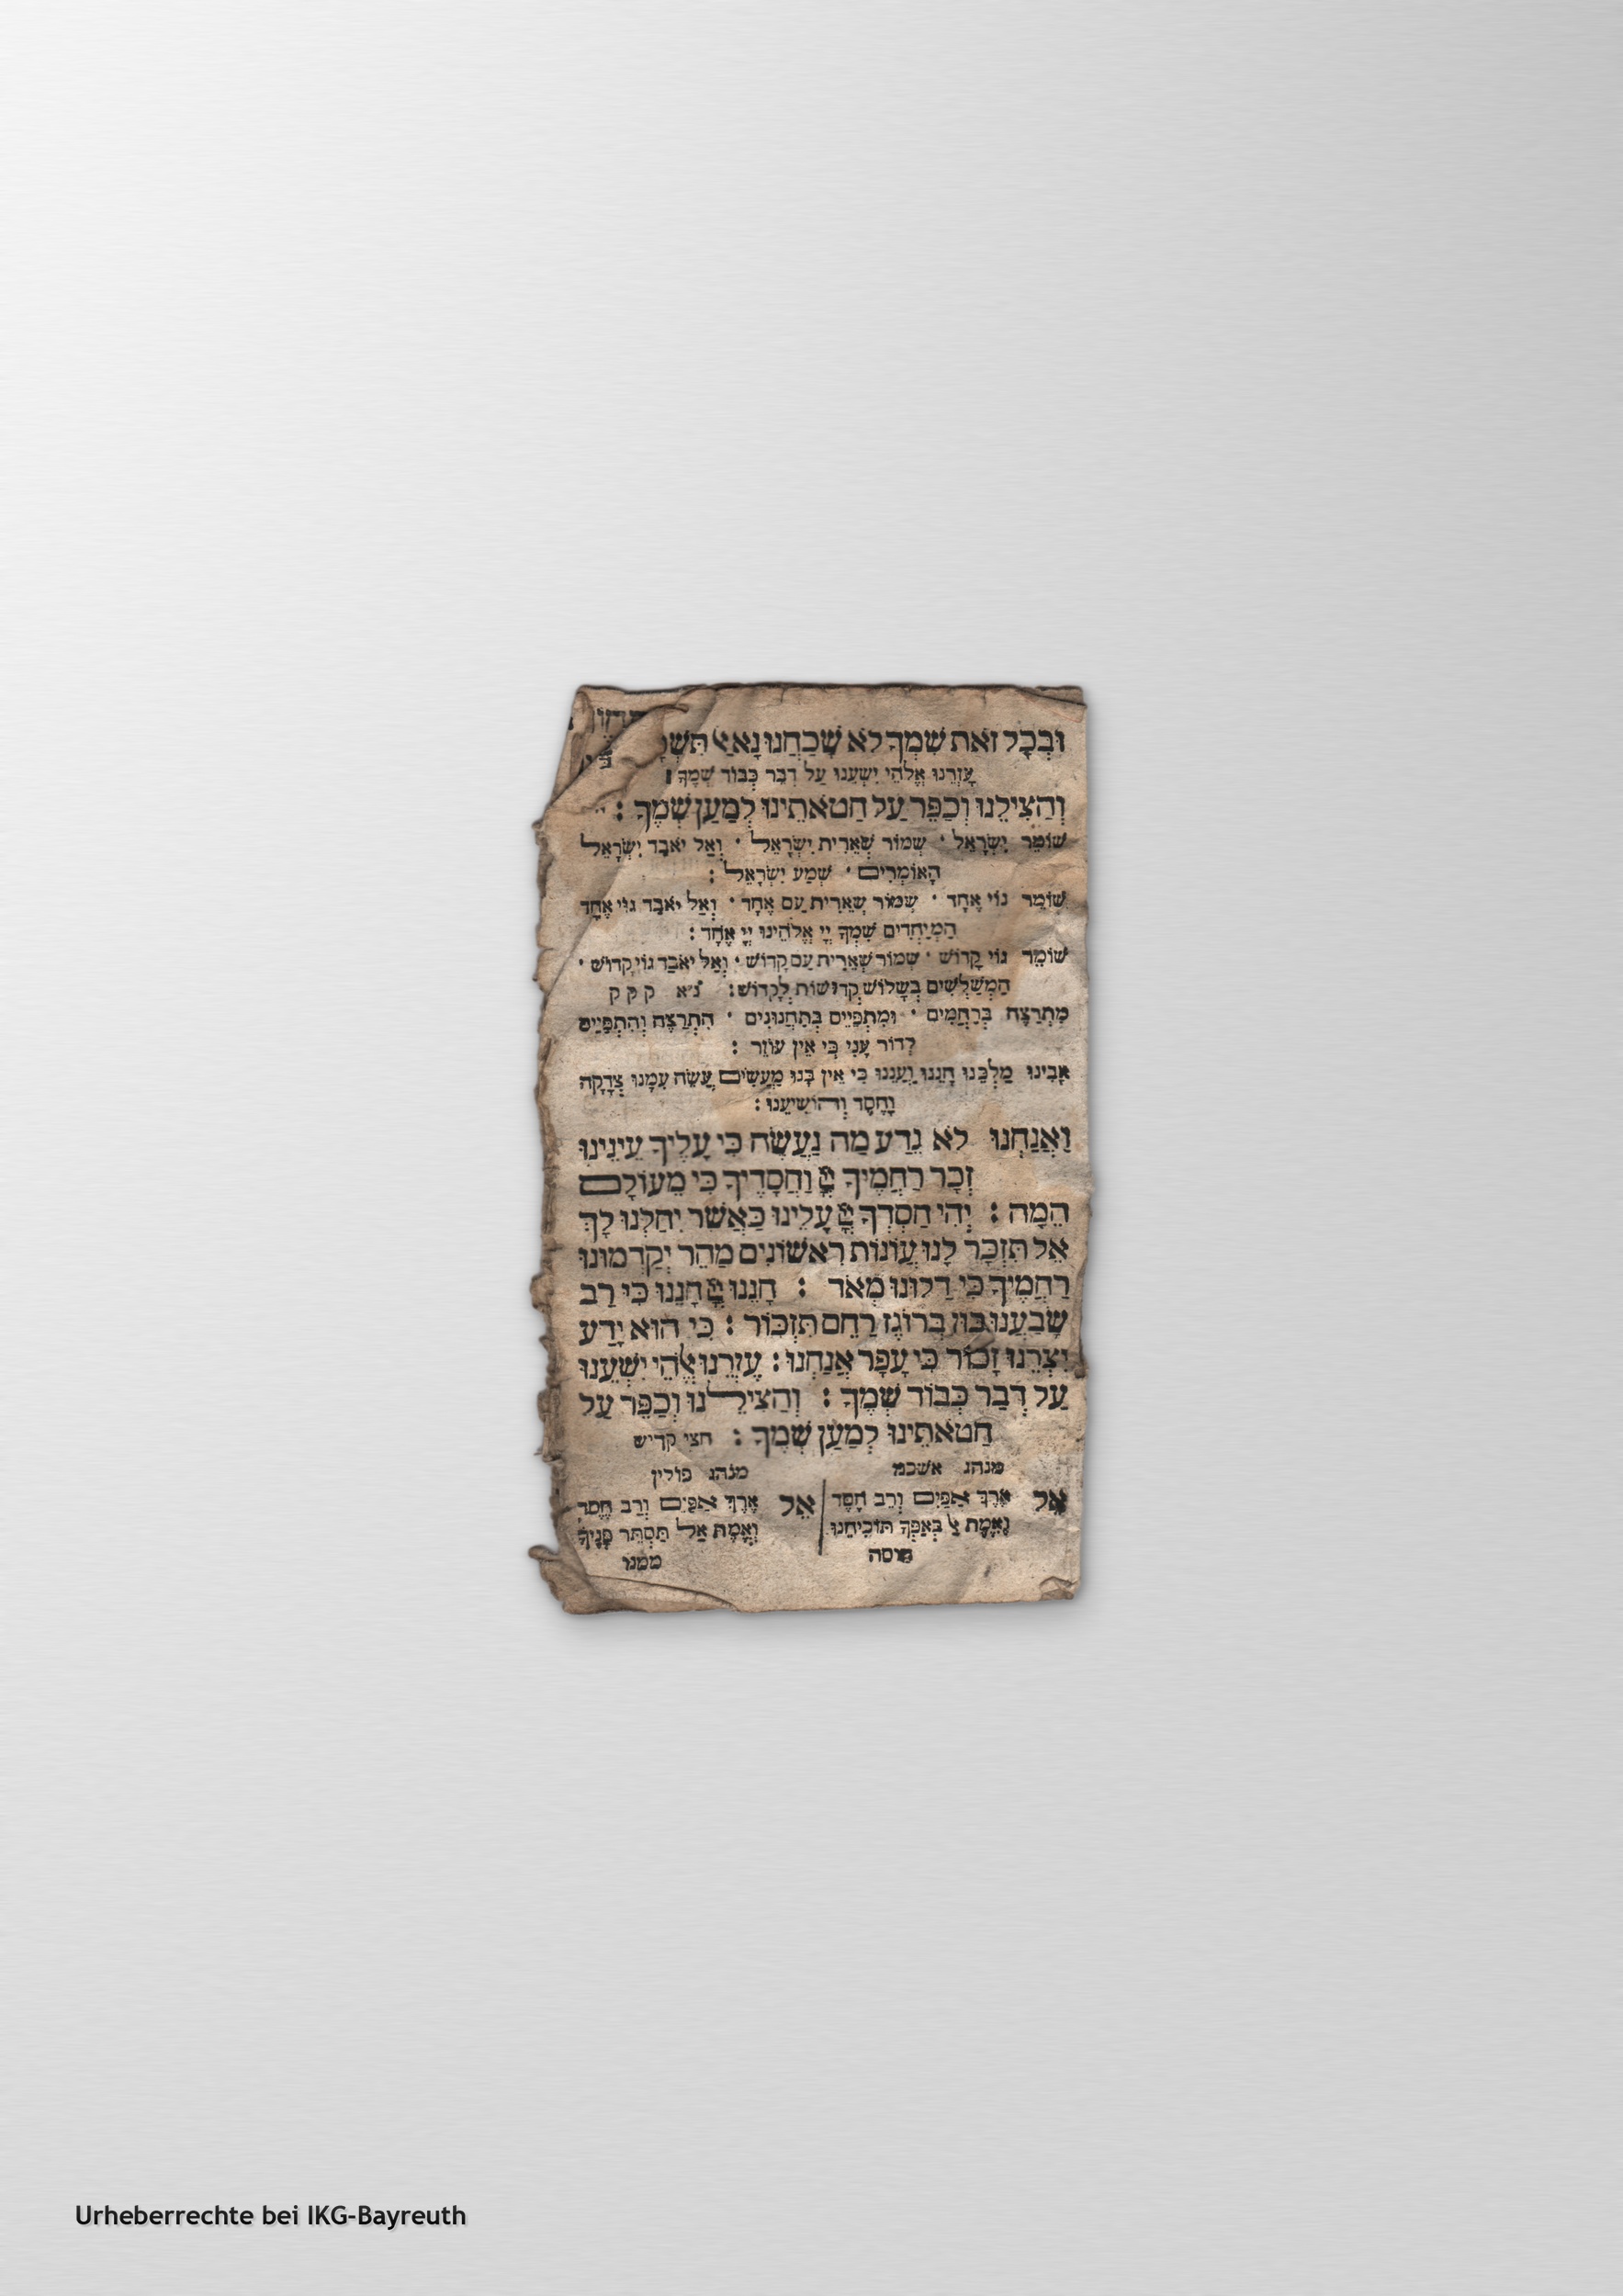 וּבְכָל זֹאת שִׁמְךָ לֹא שָׁכַחְנוּ נָא אַל
עָזְרֵנוּ אֱלֹהֵי יִשְׁעֵנוּ עַל דְבַר כְּבוֹד שְׁמֶךָ
וְהַצִילֵנוּ וְכַפֵּר עַל חַטֹאתֵינוּ לְמַעַן שְׁמֶךָ :
שׁוֹמֵר יִשְׂרָאֵל · שְׁמוֹר שְׁאֵרִית יִשְׂרָאֵל · וְאַל יֹאבַד יִשְׂרָאֵל
הָאוֹמְרִים · שְׁמַע יִשְׂרָאֵל :
שׁוֹמֵר גוֹי אֶחָד · שְׁמוֹר שְׁאֵרִית עַם אֶחָד · וְאַל יֹאבַד גוֹי אֶחָד
הַמְיַחֲדִים שִׁמְךָ יְיָ אֱלֹהֵינוּ יְיָ אֶחָד :
שׁוֹמֵר גוֹי קָדוֹשׁ · שְׁמוֹר שְׁאֵרִית עַם קָדוֹשׁ · וְאַל יֹאבַד גוֹי קָדוֹשׁ ·
הַמְשַׁלְשִׁים בְּשָׁלוֹשׁ קְדוּשׁוֹת לְקָדוֹשׁ : נ״א ק ק ק
מִתְרַצֶּה בְּרַחֲמִים · וּמִתְפַּיֵּים בְּתַחֲנוּנִים · הִתְרַצֶּה וְהִתְפַּיֵּים
לְדוֹר עָנִי כִּי אֵין עוֹזֵר :
אָבִינוּ מַלְכֵּנוּ חָנֵנוּ וַעֲנֵנוּ כִּי אֵין בָּנוּ מַעֲשִׂים עֲשֵׂה עִמָנוּ צְדָקָה
וָחֶסֶד וְהוֹשִׁיעֵנוּ :
וַאֲנַחְנוּ לֹא נֵדַע מַה נַעֲשֶׂה כִּי עָלֶיךָ עֵינֵינוּ
זְכָר רַחֲמֶיךָ יְיָ וַחֲסָדֶיךָ כִּי מֵעוֹלָם
הֵמָה : יְהִי חַסְדְךָ יְיָ עָלֵינוּ כַּאֲשֶׁר יִחַלְנוּ לָךְ
אַל תִּזְכָּר לָנוּ עֲוֹנוֹת רִאשׁוֹנִים מַהֵר יְקַדְמוּנוּ
רַחֲמֶיךָ כִּי דַלּוֹנוּ מְאֹד : חָנֵנוּ יְיָ חָנֵנוּ כִּי רַב
שָׂבַעְנוּ בוּז בְּרוֹגֶז רַחֵם תִּזְכּוֹר : כִּי הוּא יָדַע
יִצְרֵנוּ זָכוּר כִּי עָפָר אֲנַחְנוּ : עָזְרֵנוּ אֱלֹהֵי יִשְׁעֵנוּ
עַל דְבַר כְּבוֹד שְׁמֶךָ : וְהַצִילֵנוּ וְכַפֵּר עַל
חַטֹאתֵינוּ לְמַעַן שְׁמֶךָ : חצי קדיש
מנהג אשכנז
אֵל אֶרֶךְ אַפַּיִם וְרַב חֶסֶד
וֶאֱמֶת אַל בְּאַפְּךָ תּוֹכִיחֵנוּ
חוסה
מנהג פולין
אֵל אֶרֶךְ אַפַּיִם וְרַב חֶסֶד
וֶאֱמֶת אַל תַּסְתֵּר פָּנֶיךָ
ממנו
Urheberrechte bei IKG-Bayreuth